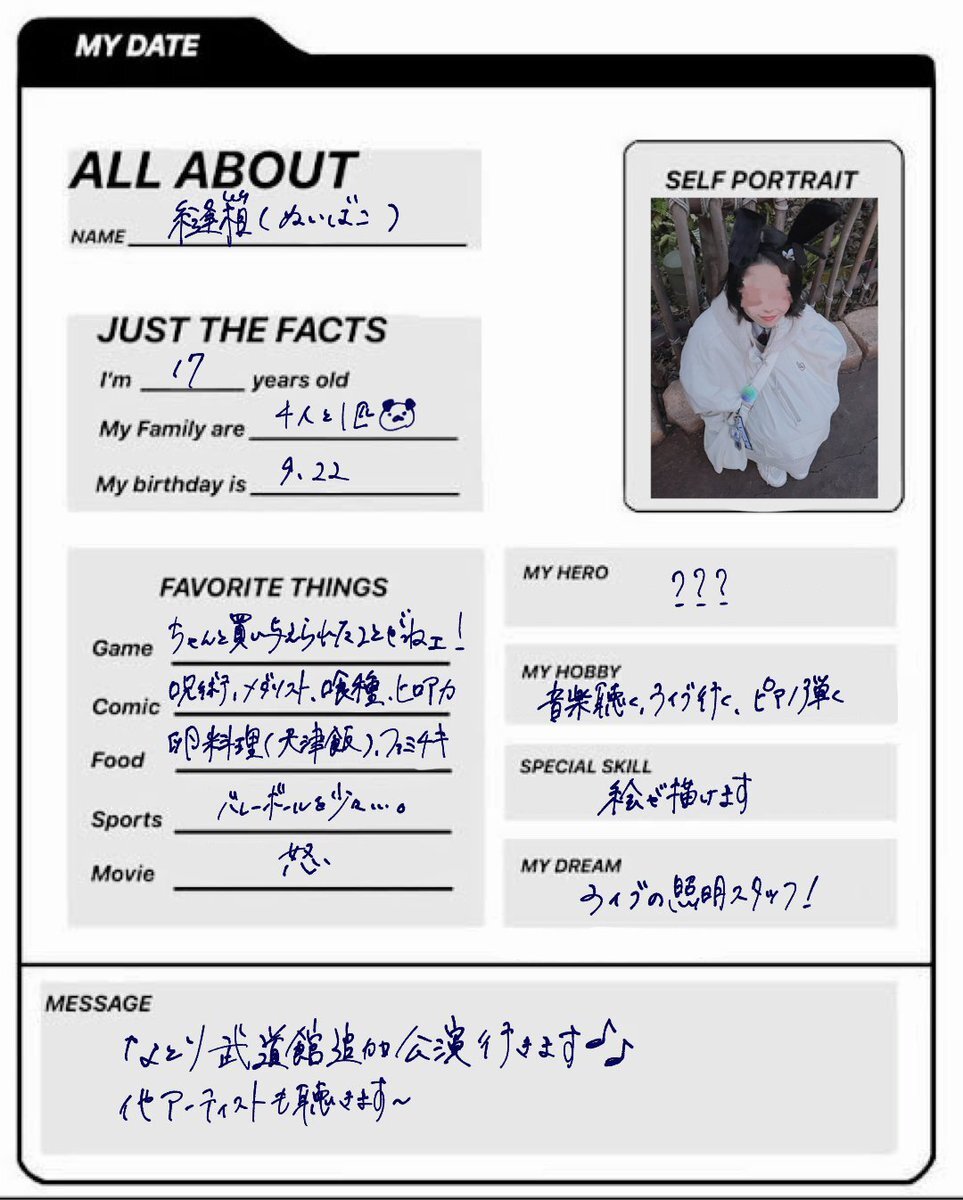 MY DATE
ALL ABOUT
NAME 縫箱(ぬいばこ)
SELF PORTRAIT
JUST THE FACTS
I'm 17 years old
My Family are 4人と1匹
My birthday is 9.22
FAVORITE THINGS
Game ちゃんと買い与えられたことがねェ!
Comic 呪術、メダリスト、喰種、ヒロアカ
Food 卵料理(天津飯)、ファミチキ
Sports バレーボールを少々…。
Movie 怒、
MY HERO ???
MY HOBBY
音楽聴く、ライブ行く、ピアノ弾く
SPECIAL SKILL
絵が描けます
MY DREAM
ライブの照明スタッフ!
MESSAGE
なとり武道館追加公演行きます♪♪
他アーティストも聴きます~